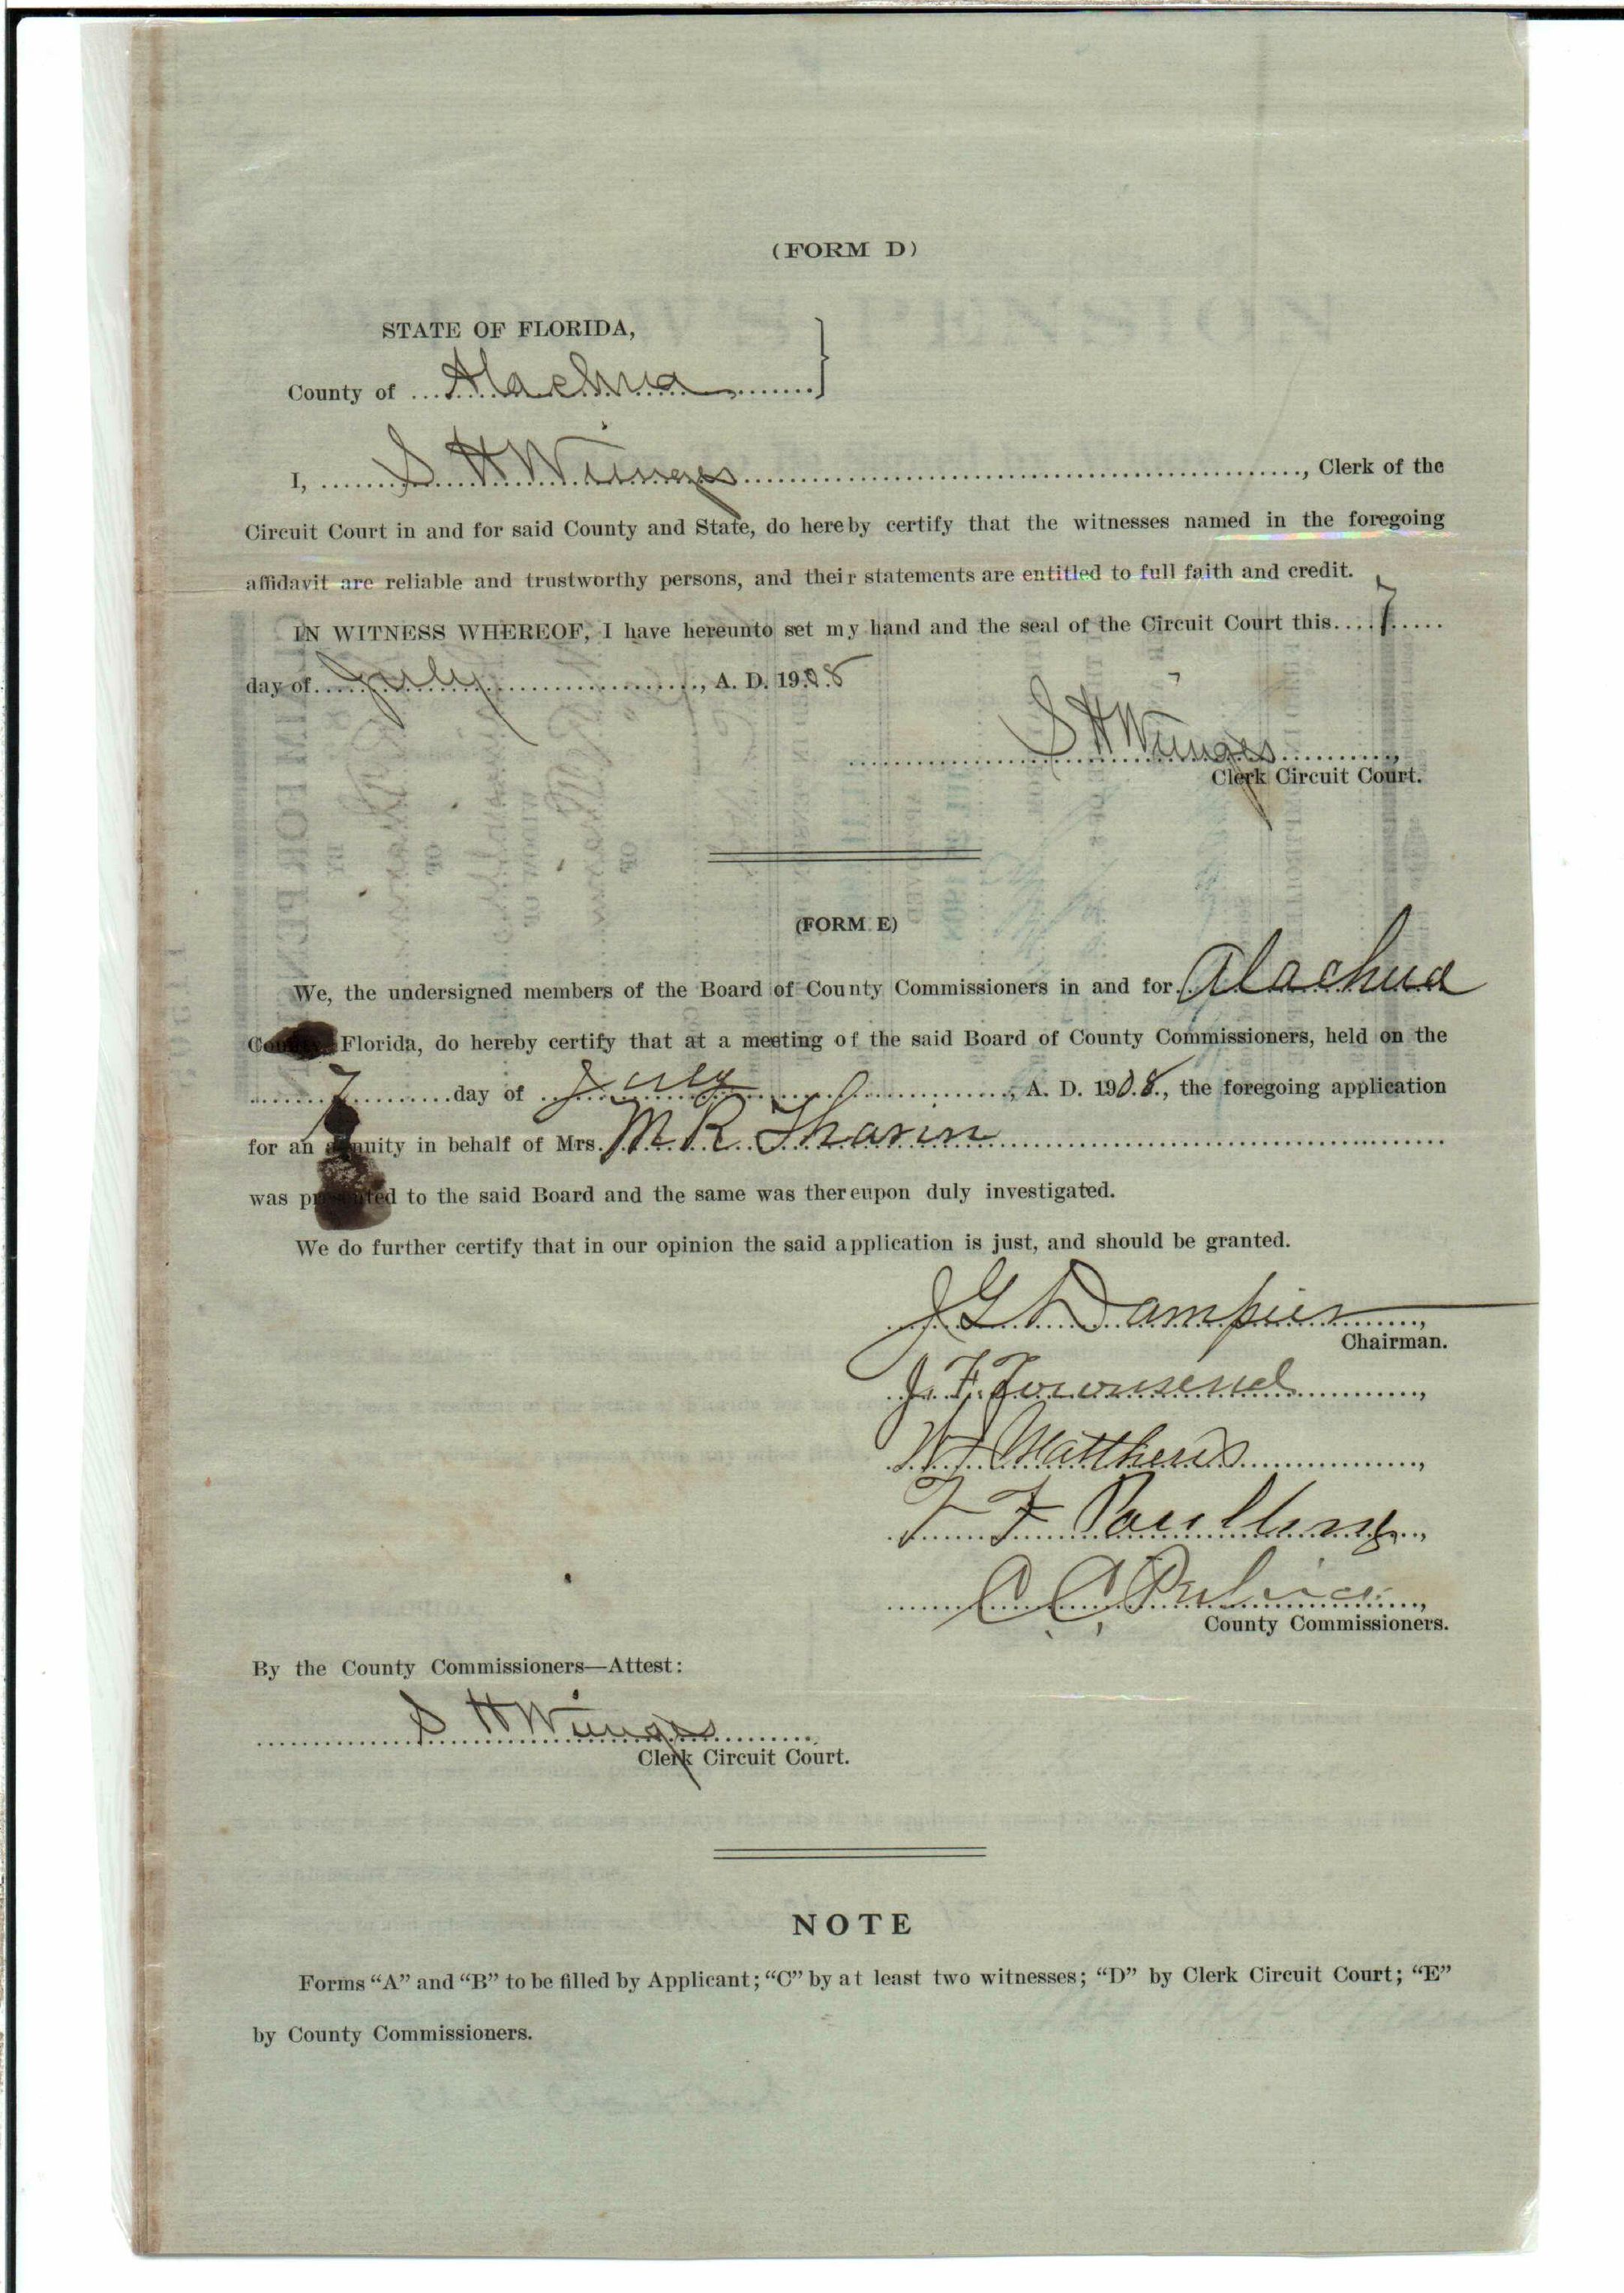 (FORM D)
STATE OF FLORIDA,
County of Alachua
I, S H Wienges, Clerk of the
Circuit Court in and for said County and State, do hereby certify that the witnesses named in the foregoing
affidavit are reliable and trustworthy persons, and their statements are entitled to full faith and credit.
IN WITNESS WHEREOF, I have hereunto set my hand and the seal of the Circuit Court this 7
day of July, A. D. 1908
S H Wienges,
Clerk Circuit Court.
(FORM E)
We, the undersigned members of the Board of County Commissioners in and for Alachua
County, Florida, do hereby certify that at a meeting of the said Board of County Commissioners, held on the
7 day of July, A. D. 1908, the foregoing application
for an annuity in behalf of Mrs. M R Tharin
was presented to the said Board and the same was thereupon duly investigated.
We do further certify that in our opinion the said application is just, and should be granted.
J G Dampier,
Chairman.
J. F. Townsend,
Matthews,
F Paulling,
C C
County Commissioners.
By the County Commissioners—Attest:
S H Wienges
Clerk Circuit Court.
NOTE
Forms “A” and “B” to be filled by Applicant; “C” by at least two witnesses; “D” by Clerk Circuit Court; “E”
by County Commissioners.